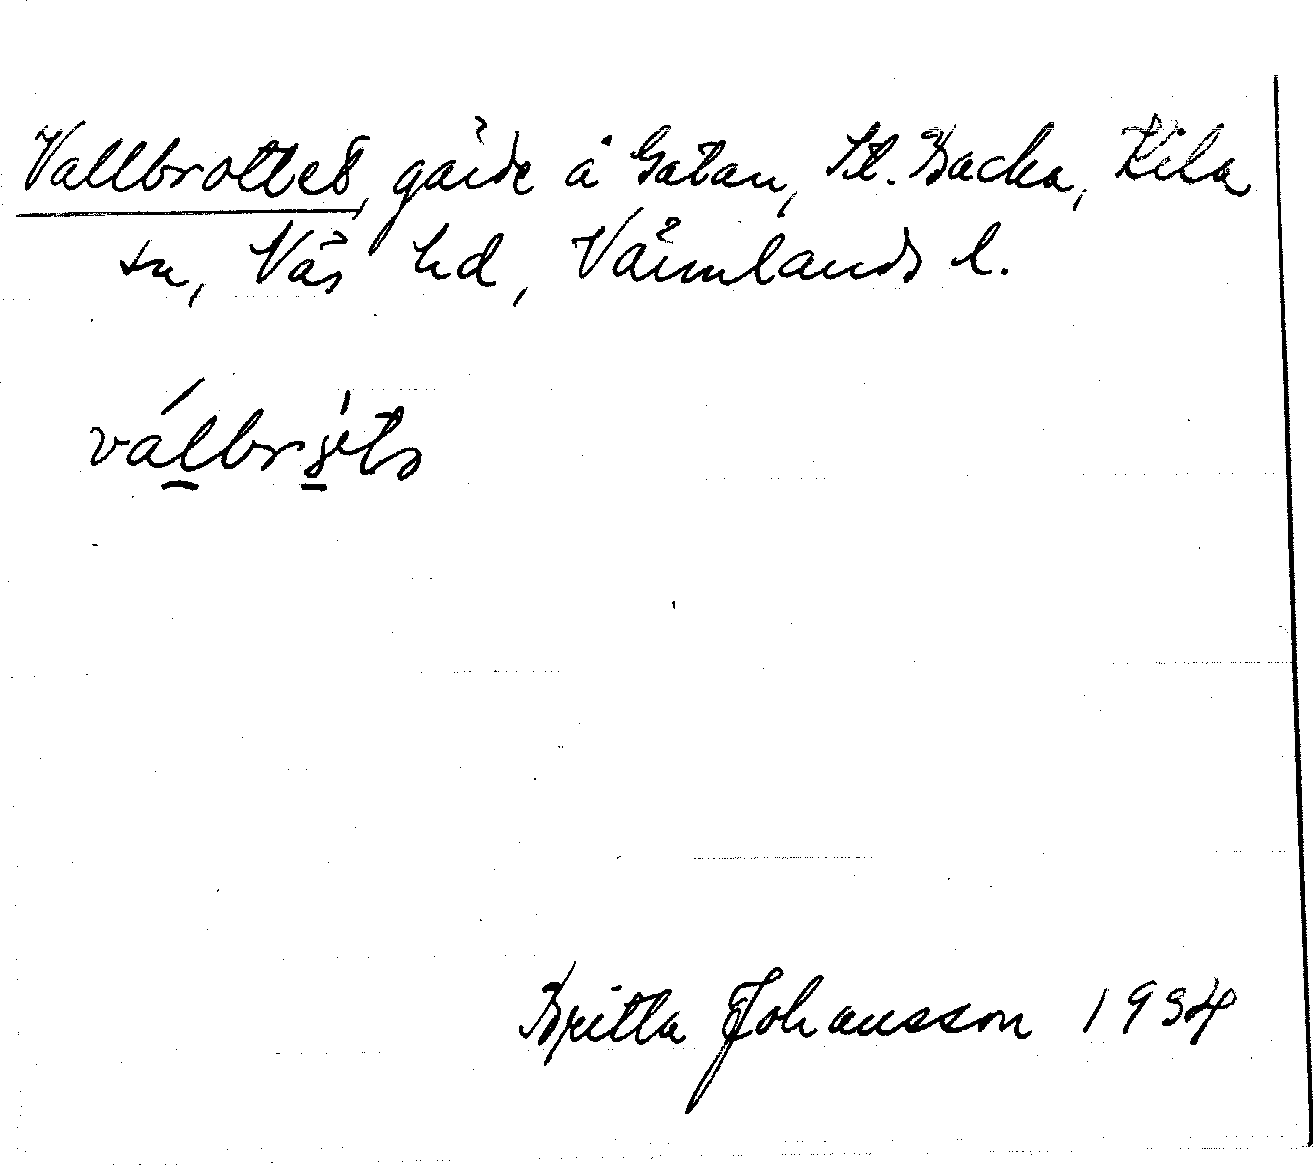 Vallbrottet, gärde å Gatan, St. Backa, Kila
sn, Näs hd, Värmlands l.
Britta Johansson 1934